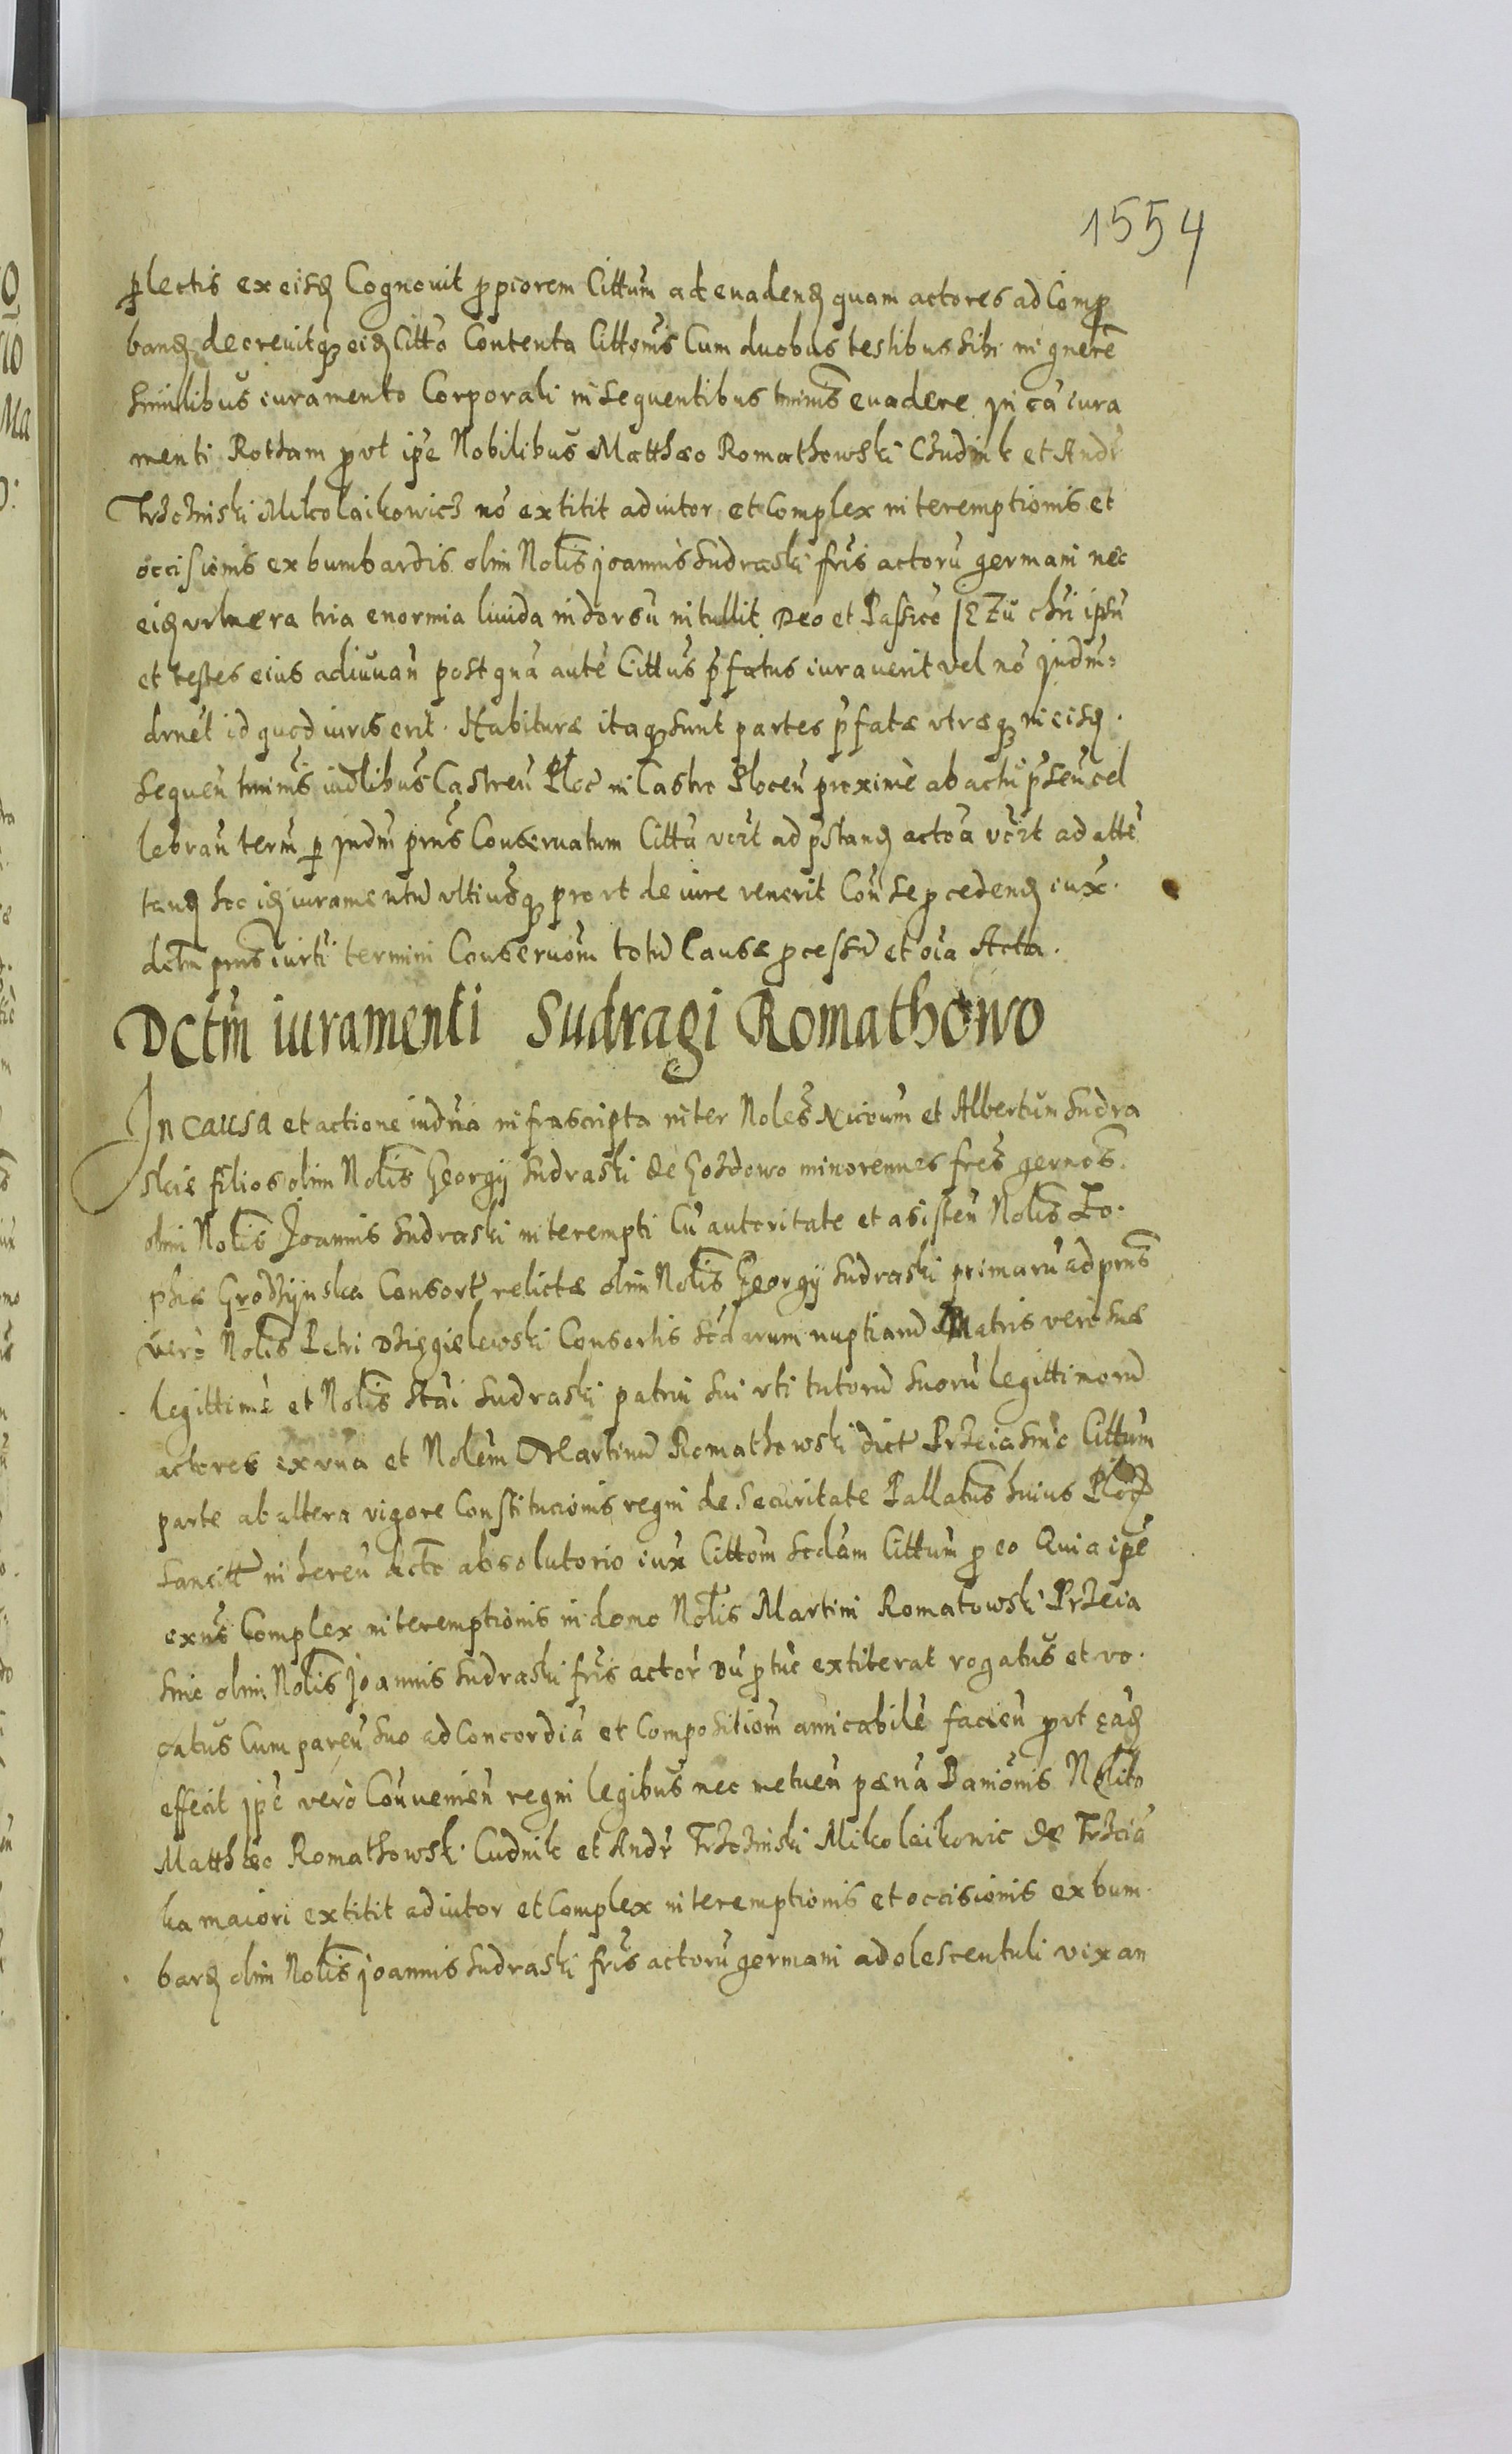 1554
plectis ex eisd Cognouit ppiorem Cittum ad euadend quam actores ad Comp
band decreuitq eid Citto Contenta Cittonis Cum duobus testibus sibi in gnere
similibus iuramento Corporali in sequentibus tminis euadere in ea iura
menti Rotham put ipe Nobilibus Matthæo Romathowski Chudnik et Andr
Trzcinski Mikolaikowicz no extitit adiutor et Complex interemptionis et
occisionis ex bumbardis olim Nolis Joannis Sudraski fris actoru germani nec
eid vulnera tria enormia liuida in dorsu intullit Deo et Passioe JEZu chri ipsu
et testes eius adiuuan post qua aute Cittus pfatus iurauerit vel no Judm
drnet id quod iuris erit. Habituræ itaq sunt partes pfatæ vtræq in eisd
sequen tminis iudlibus Castren Ploc in Castro Plocen proxime ab actu psen cel
lebran term p Judm pns Conseruatum Citta vert ad pstand actoa vert ad atte
tand hoc id iuramentu vltiusq provt de iure venerit Con se pcedend iux
dctm pns iurti termini Conseruom totu Causæ pcessu et oia Acta.
Dctm iuramenti Sudragi Romathowo
In causa et actione iudria infrascripta inter Noles Nicoum et Albertum Sudra
skie filios olim Nolis Georgij Sudraski de Gozdowo minorennes fres gernos
olim Nolis Joannis Sudraski interempti Cu autoritate et asisten Nolis Zo
phiæ Grodzynska Consort relictæ olim Nolis Georgij Sudraski primaru ad pns
vero Nolis Petri Dzięgielewski Consortis Scdarum nuptiaru Matris vero suæ
legittime et Nolis Stai Sudraski patrui sui vti tutoru suoru legittimoru
actores ex vna et Nolem Martinu Romathowski dict Przeciasnic Cittum
parte ab altera vigore Constitucionis regni de Securitate Pallatus huius Ploc
Sancitt in heren dicto absolutorio iux Cittom scdam Cittum p eo Quia ipe
exns Complex interemptionis in domo Nolis Martini Romatowski Przecia
snic olim Nolis Joannis Sudraski fris actor Du ptuc extiterat rogatus et vo
catus Cum paren suo ad Concordia et Compositiom amicabile facien put ead
effecit ipe vero Conuenien regni legibus nec metuen pæna Banionis Nolito
Matthæo Romathowski Cudnik et Andr Trzcinski Mikolaikowic de Trzcia
ka maiori extitit adiutor et Complex interemptionis et occisionis ex bum
bard olim Nolis Joannis Sudraski fris actoru germani adolescentuli vix an